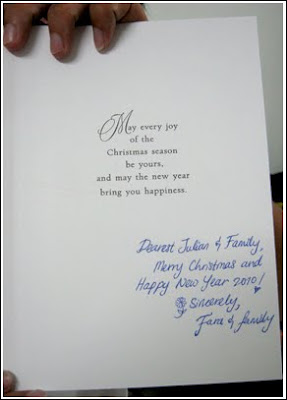 May every joy
of the
Christmas season
be yours,
and may the new year
bring you happiness.
Dearest Julian & Family,
Merry Christmas and
Happy New Year 2010!
Sincerely,
& family